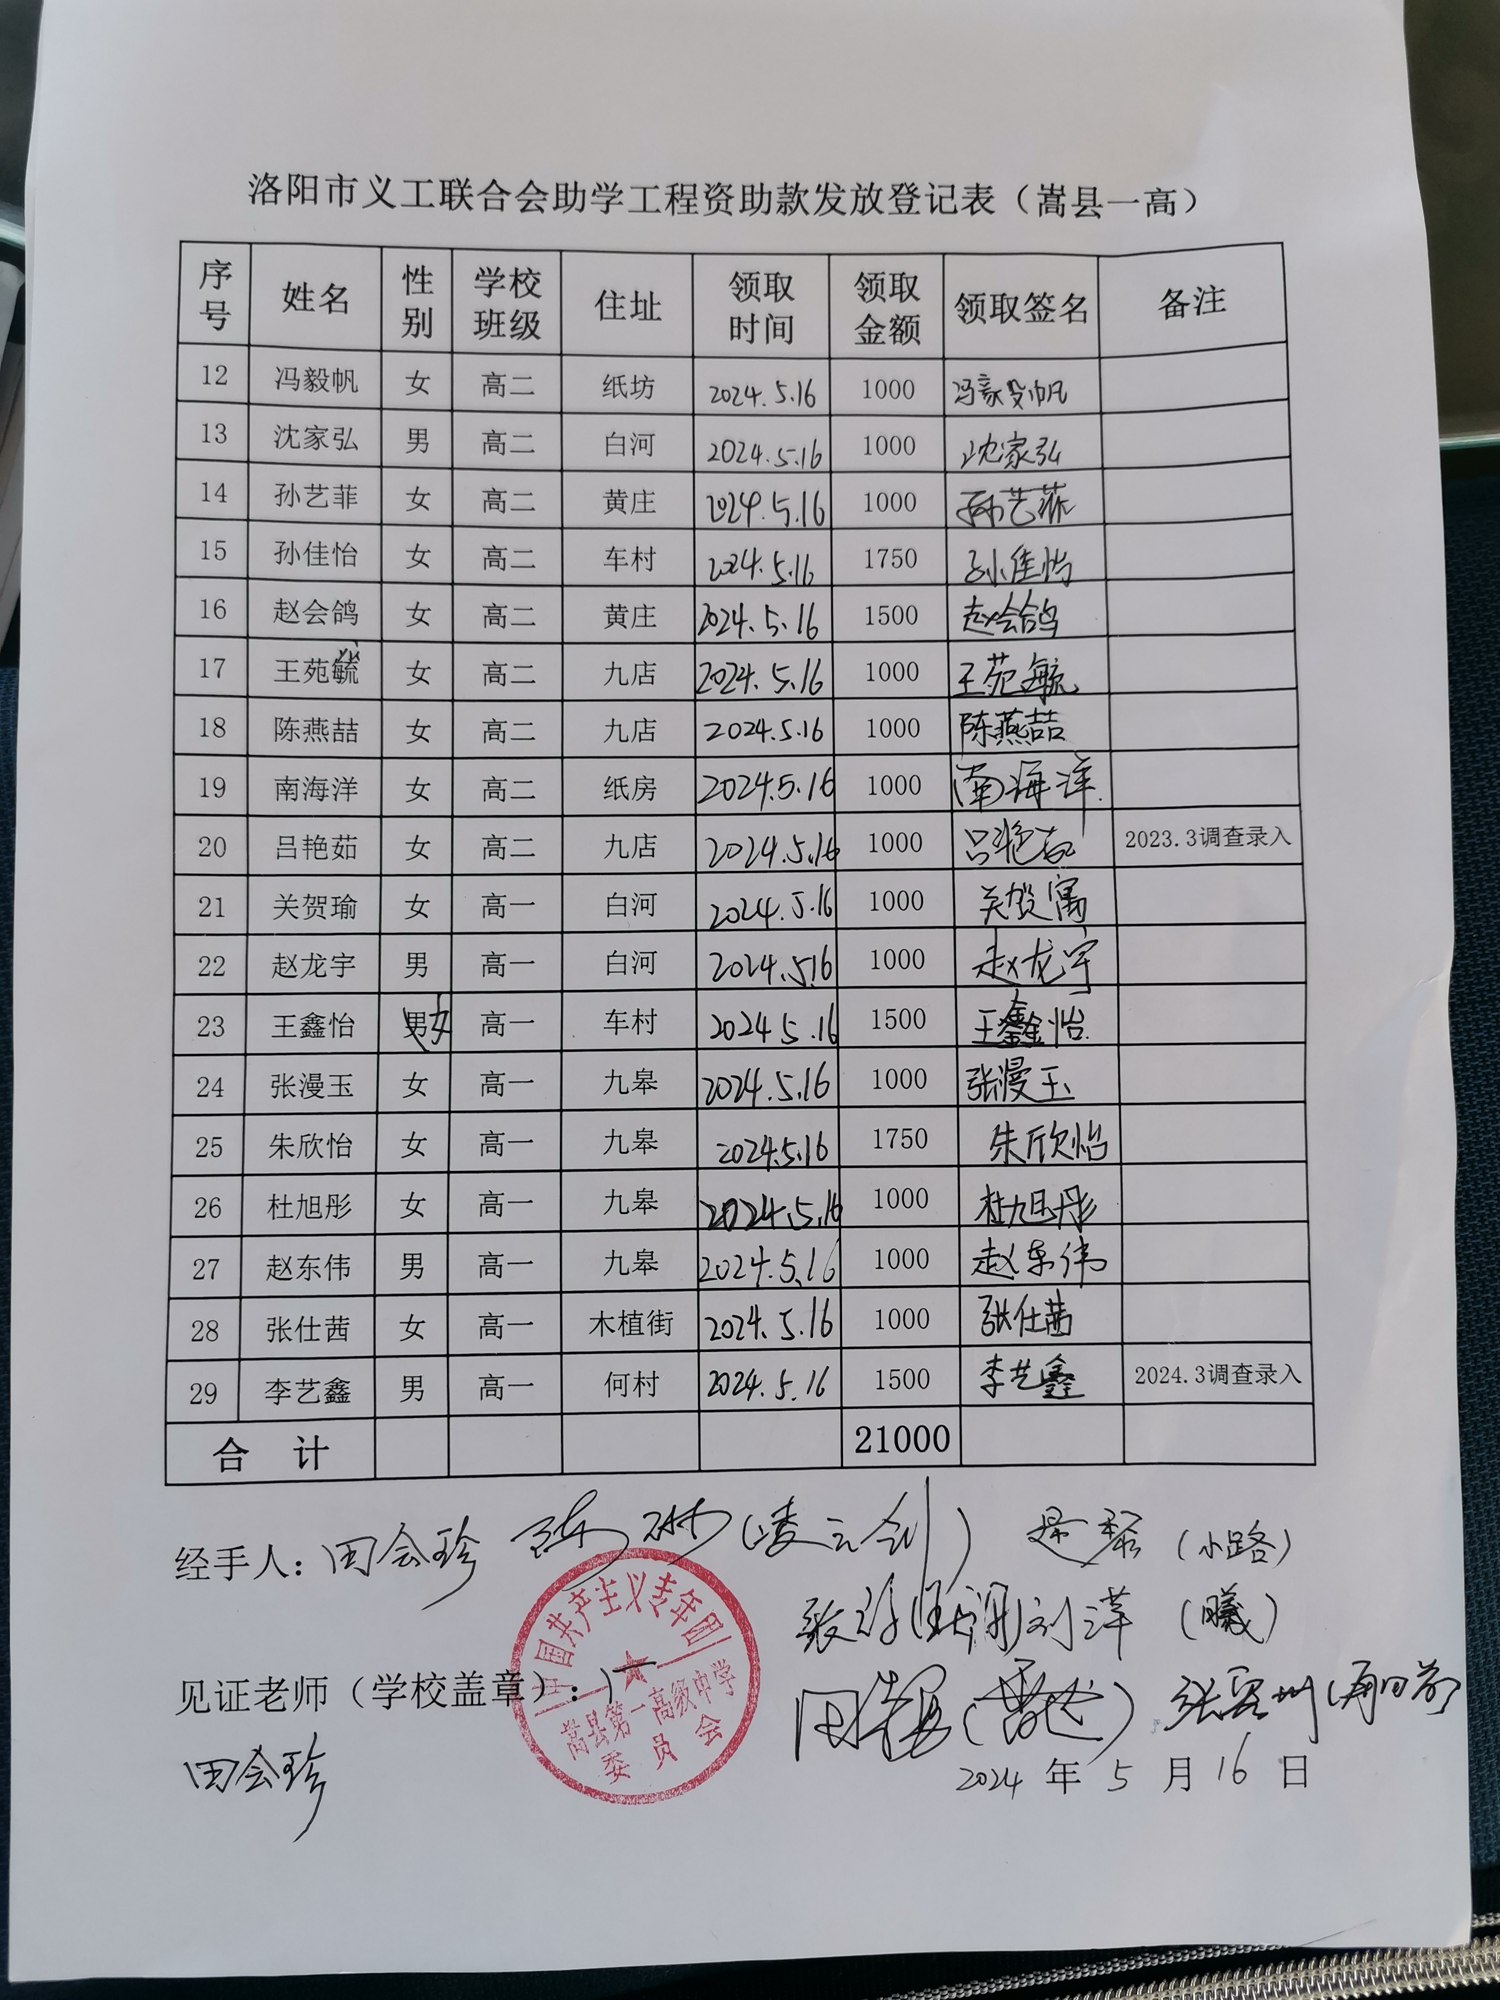 洛阳市义工联合会助学工程资助款发放登记表（嵩县一高）
序号 姓名 性别 学校班级 住址 领取时间 领取金额 领取签名 备注
12 冯毅帆 女 高二 纸坊 2024.5.16 1000 冯毅帆
13 沈家弘 男 高二 白河 2024.5.16 1000 沈家弘
14 孙艺菲 女 高二 黄庄 2024.5.16 1000 孙艺菲
15 孙佳怡 女 高二 车村 2024.5.16 1750 孙佳怡
16 赵会鸽 女 高二 黄庄 2024.5.16 1500 赵会鸽
17 王苑毓 女 高二 九店 2024.5.16 1000 王苑毓
18 陈燕喆 女 高二 九店 2024.5.16 1000 陈燕喆
19 南海洋 女 高二 纸房 2024.5.16 1000 南海洋
20 吕艳茹 女 高二 九店 2024.5.16 1000 吕艳茹 2023.3调查录入
21 关贺瑜 女 高一 白河 2024.5.16 1000 关贺
22 赵龙宇 男 高一 白河 2024.5.16 1000 赵龙宇
23 王鑫怡 男女 高一 车村 2024.5.16 1500 王鑫怡
24 张漫玉 女 高一 九皋 2024.5.16 1000 张漫玉
25 朱欣怡 女 高一 九皋 2024.5.16 1750 朱欣怡
26 杜旭彤 女 高一 九皋 2024.5.16 1000 杜旭彤
27 赵东伟 男 高一 九皋 2024.5.16 1000 赵东伟
28 张仕茜 女 高一 木植街 2024.5.16 1000 张仕茜
29 李艺鑫 男 高一 何村 2024.5.16 1500 李艺鑫 2024.3调查录入
合 计 21000
经手人：田会珍 陈琳（凌云剑） （小路）
刘洋（曦）
见证老师（学校盖章）：
田会珍
中国共产主义青年团
嵩县第一高级中学
委员会
2024 年 5 月 16 日